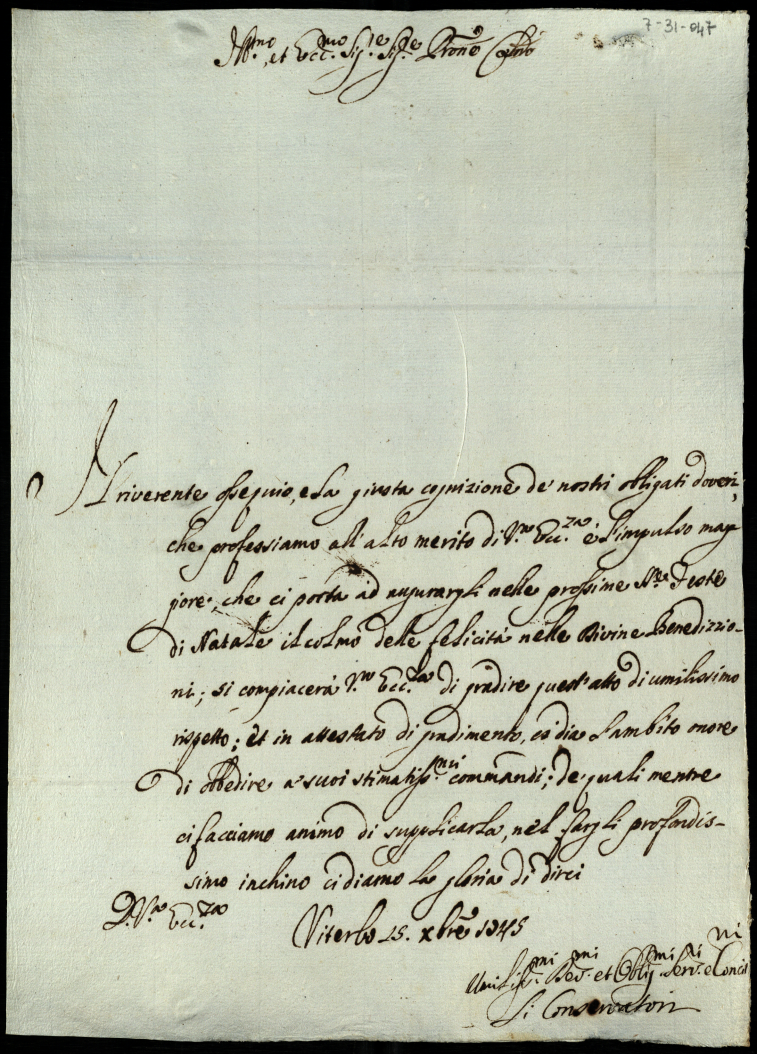 7-31-047
Ill.mo et Ecc.mo Sig.re Sig.re Prone Colmo
Il riverente ossequio, e la giusta cognizione de' nostri obligati doveri,
che professiamo all'alto merito di V.ra Ecc.za è l'impulso mag
giore, che ci porta ad augurargli nelle prossime S.te Feste
di Natale il colmo delle felicità nelle Divine Benedizzio-
ni; si compiacerà V.ra Ecc.za di gradire quest'atto di umilissimo
rispetto; et in attestato di gradimento, ci dia l'ambito onore
di obbedire a' suoi stimatiss.mi commandi; de' quali mentre
ci facciamo animo di supplicarla, nel fargli profondis-
simo inchino ci diamo la gloria di dirci
D. V.ra Ecc.za
Viterbo 15. xbre 1745
Umiliss.mi Dev.mi et Oblig.mi Serv.ri e Concit.ni
Li Conservatori